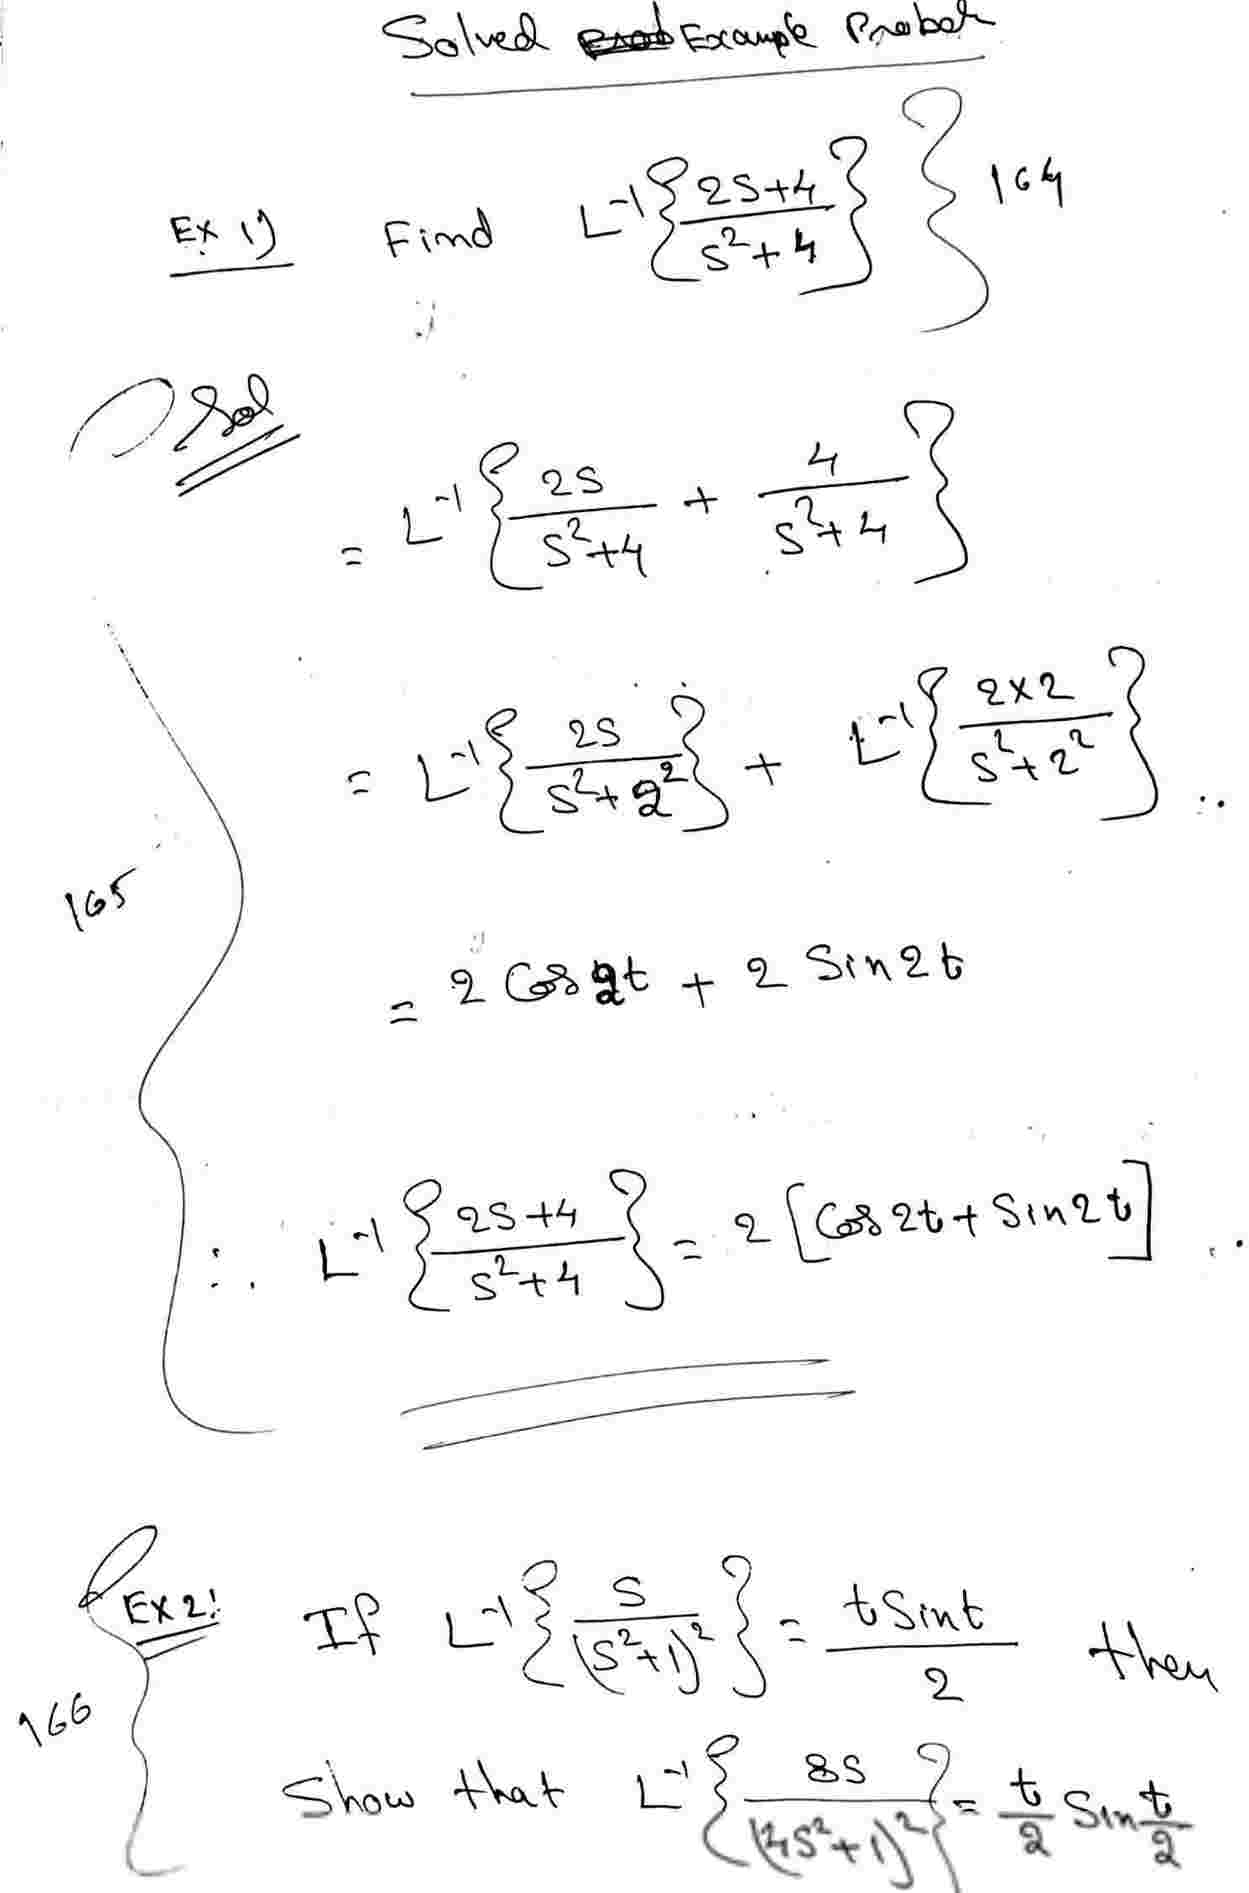 Solved Example
Ex 1) Find L⁻¹{(2S+4)/(S²+4)} } 164
Sol
= L⁻¹{2S/(S²+4) + 4/(S²+4)}
= L⁻¹{2S/(S²+2²)} + L⁻¹{2×2/(S²+2²)}
165
= 2 Cos 2t + 2 Sin 2t
∴ L⁻¹{(2S+4)/(S²+4)} = 2 [Cos 2t + Sin 2t]
Ex 2: If L⁻¹{S/(S²+1)²} = t Sin t/2 then
166
Show that L⁻¹{8S/(4S²+1)²} = t/2 Sin t/2